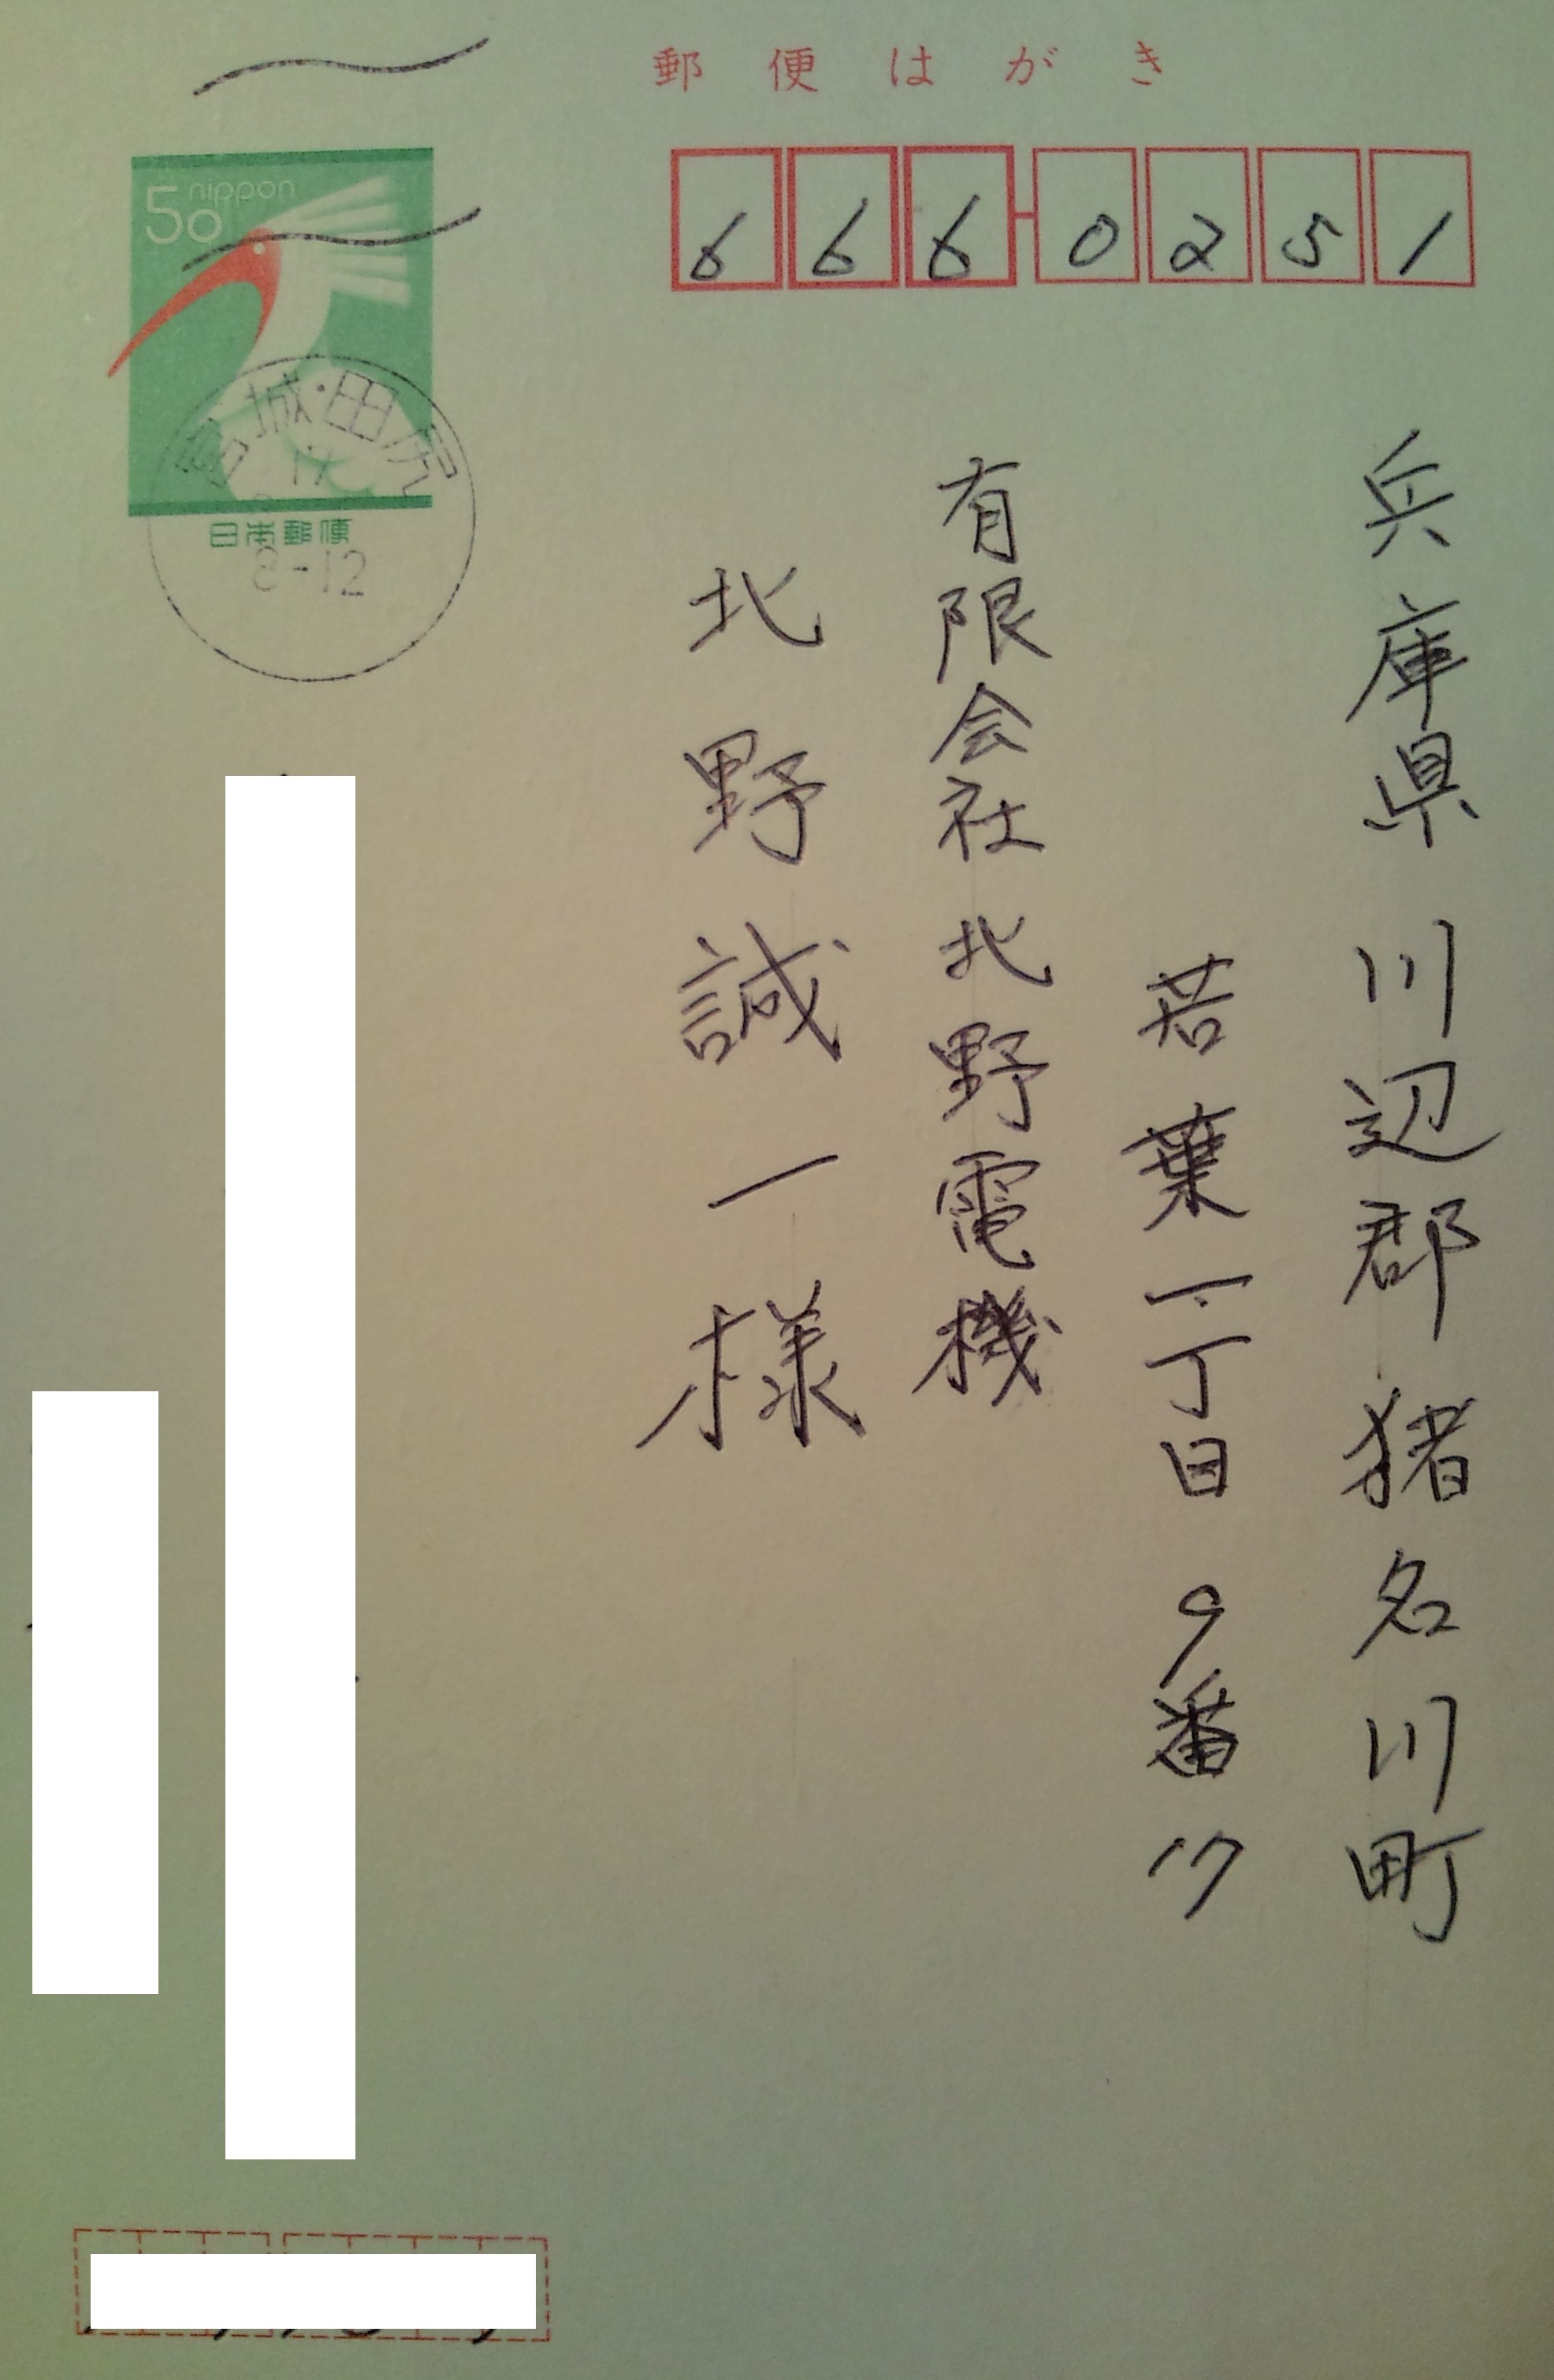 郵便はがき
666-0251
兵庫県川辺郡猪名川町
若葉一丁目9番17
有限会社北野電機
北野誠一様
50 nippon
宮城・田尻
日本郵便
8-12